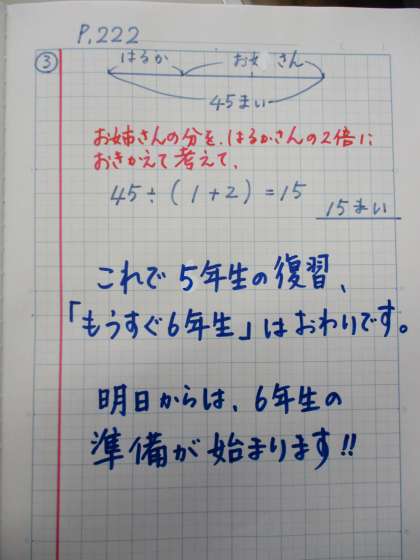 P.222
③
はるか お姉さん
45まい
お姉さんの分を、はるかさんの2倍に
おきかえて考えて、
45÷(1+2)=15
15まい
これで5年生の復習、
「もうすぐ6年生」はおわりです。
明日からは、6年生の
準備が始まります!!